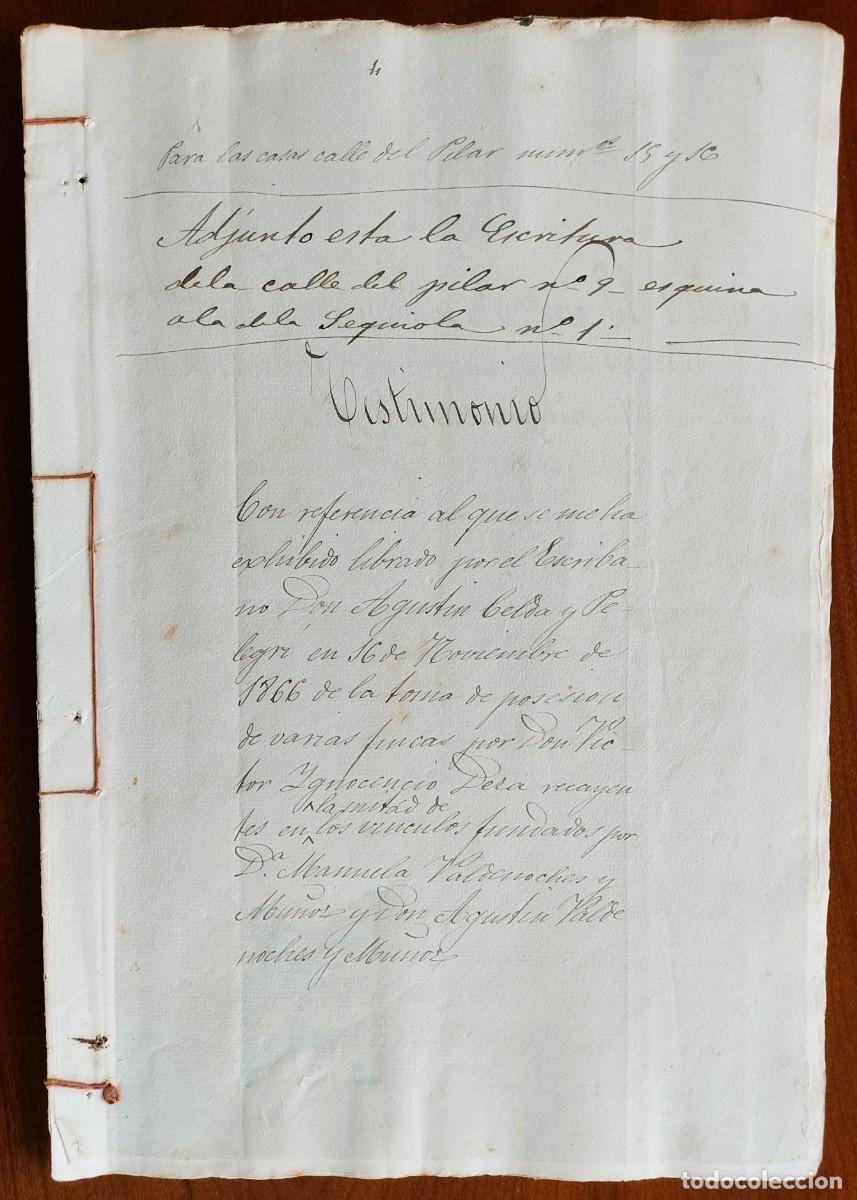 4
Para las casas calle del Pilar num.ros 15 y 16
Adjunto esta la Escritura
dela calle del pilar n.o 9 - esquina
ala dela Sequiola n.o 1. -
Testimonio
Con referencia al que se me ha
exhibido librado por el Escriba-
no Don Agustin Celda y Pe-
legri en 16 de Noviembre de
1866 de la toma de posesion
de varias fincas por Don Vic-
tor Ygnocencio Deza recayen
tes en la mitad de los vinculos fundados por
D.a Manuela Valdenoches y
Muñoz y Don Agustin Valde
noches y Muñoz
todocoleccion